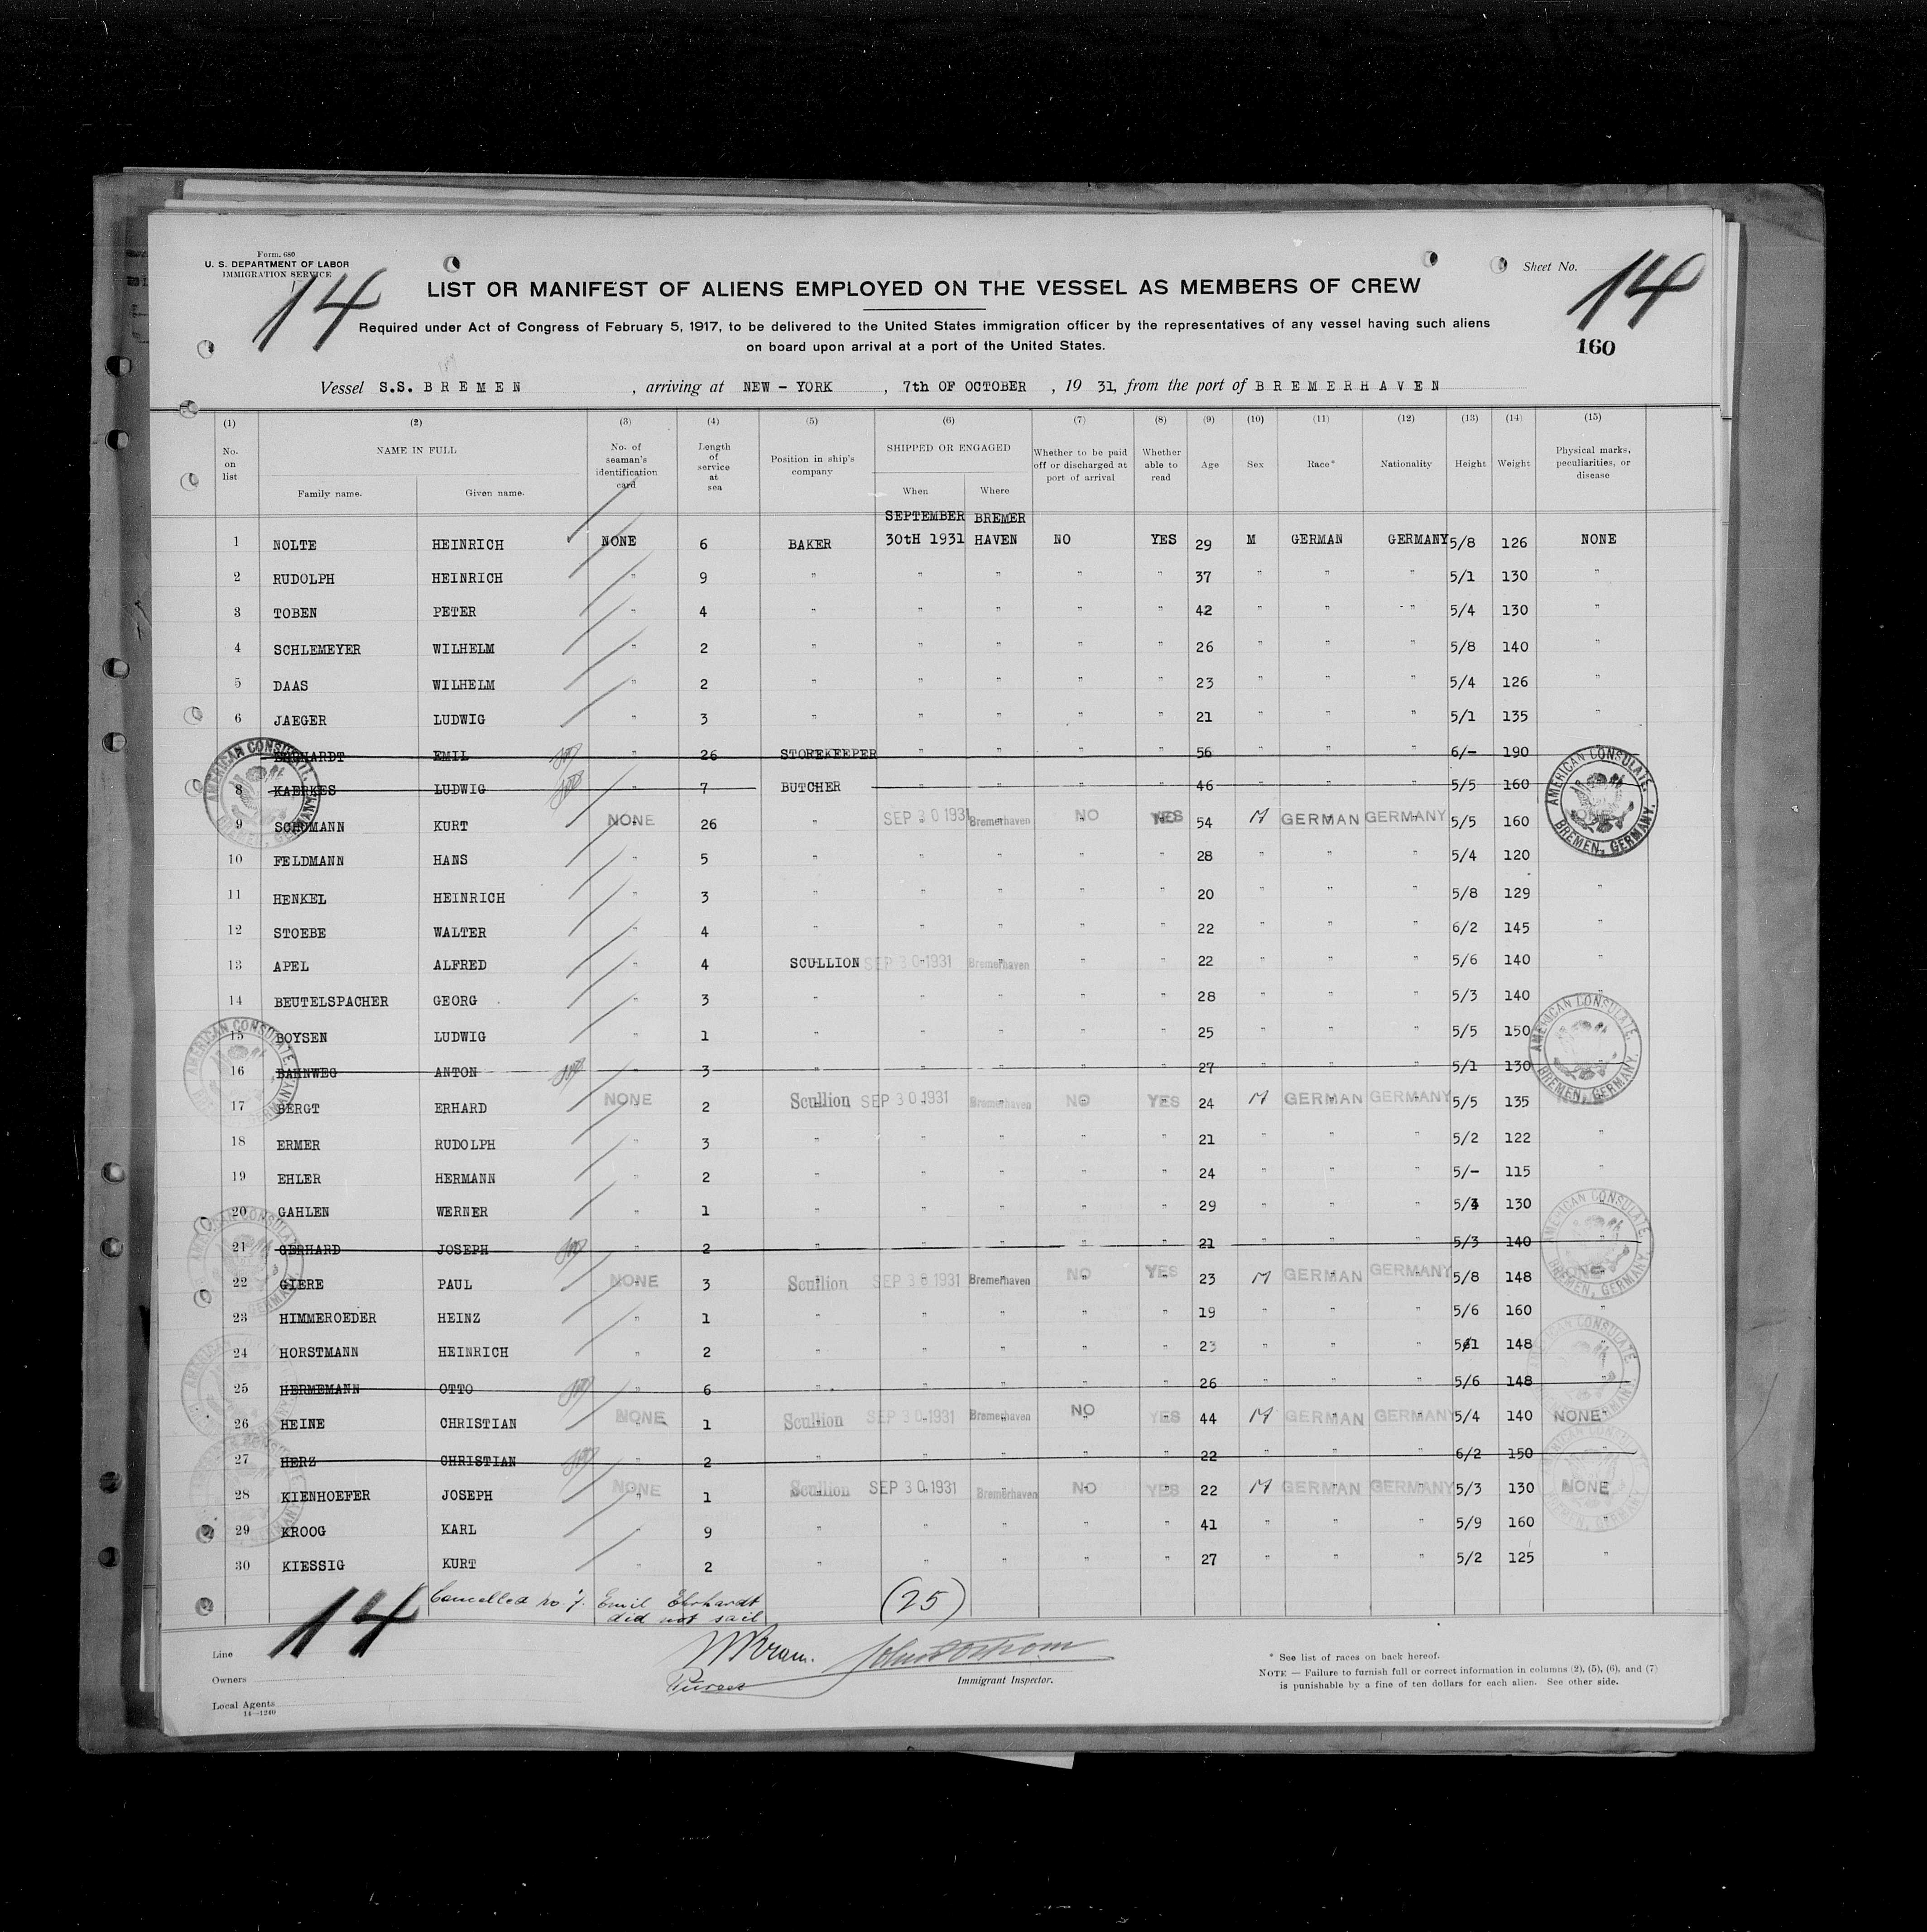 Form. 680
U. S. DEPARTMENT OF LABOR
IMMIGRATION SERVICE
14
Sheet No. 14
160
LIST OR MANIFEST OF ALIENS EMPLOYED ON THE VESSEL AS MEMBERS OF CREW
Required under Act of Congress of February 5, 1917, to be delivered to the United States immigration officer by the representatives of any vessel having such aliens
on board upon arrival at a port of the United States.
Vessel S.S. BREMEN, arriving at NEW - YORK, 7th OF OCTOBER, 19 31, from the port of BREMERHAVEN
(1) (2) (3) (4) (5) (6) (7) (8) (9) (10) (11) (12) (13) (14) (15)
No. on list NAME IN FULL Family name. Given name. No. of seaman's identification card Length of service at sea Position in ship's company SHIPPED OR ENGAGED When Where Whether to be paid off or discharged at port of arrival Whether able to read Age Sex Race* Nationality Height Weight Physical marks, peculiarities, or disease
SEPTEMBER BREMER
1 NOLTE HEINRICH NONE 6 BAKER 30tH 1931 HAVEN NO YES 29 M GERMAN GERMANY 5/8 126 NONE
2 RUDOLPH HEINRICH " 9 " " " " " 37 " " " 5/1 130 "
3 TOBEN PETER " 4 " " " " " 42 " " " 5/4 130 "
4 SCHLEMEYER WILHELM " 2 " " " " " 26 " " " 5/8 140 "
5 DAAS WILHELM " 2 " " " " " 23 " " " 5/4 126 "
6 JAEGER LUDWIG " 3 " " " " " 21 " " " 5/1 135 "
EHRHARDT EMIL " 26 STOREKEEPER " " " " 56 " " " 6/- 190 "
8 KAERKES LUDWIG " 7 BUTCHER " " " " 46 " " " 5/5 160
9 SCHUMANN KURT NONE 26 " SEP 30 1931 Bremerhaven NO YES 54 M GERMAN GERMANY 5/5 160
10 FELDMANN HANS " 5 " " " " " 28 " " " 5/4 120
11 HENKEL HEINRICH " 3 " " " " " 20 " " " 5/8 129 "
12 STOEBE WALTER " 4 " " " " " 22 " " " 6/2 145 "
13 APEL ALFRED " 4 SCULLION SEP 30 1931 Bremerhaven " " 22 " " " 5/6 140 "
14 BEUTELSPACHER GEORG " 3 " " " " " 28 " " " 5/3 140 "
15 BOYSEN LUDWIG " 1 " " " " " 25 " " " 5/5 150
16 BAHNWEG ANTON " 3 " " " " " 27 " " " 5/1 130 "
17 BERGT ERHARD NONE 2 Scullion SEP 30 1931 Bremerhaven NO YES 24 M GERMAN GERMANY 5/5 135 NONE
18 ERMER RUDOLPH " 3 " " " " " 21 " " " 5/2 122 "
19 EHLER HERMANN " 2 " " " " " 24 " " " 5/- 115 "
20 GAHLEN WERNER " 1 " " " " " 29 " " " 130 "
21 GERHARD JOSEPH " 2 " " " " " 21 " " " 5/3 140 "
22 GIERE PAUL NONE 3 Scullion SEP 30 1931 Bremerhaven NO YES 23 M GERMAN GERMANY 5/8 148 NONE
23 HIMMEROEDER HEINZ " 1 " " " " " 19 " " " 5/6 160 "
24 HORSTMANN HEINRICH " 2 " " " " " 23 " " " 148 "
25 HERMEMANN OTTO " 6 " " " " " 26 " " " 5/6 148 "
26 HEINE CHRISTIAN NONE 1 Scullion SEP 30 1931 Bremerhaven NO YES 44 M GERMAN GERMANY 5/4 140 NONE
27 HERZ CHRISTIAN " 2 " " " " " 22 " " " 6/2 150 "
28 KIENHOEFER JOSEPH NONE 1 Scullion SEP 30 1931 Bremerhaven NO YES 22 M GERMAN GERMANY 5/3 130 NONE
29 KROOG KARL " 9 " " " " " 41 " " " 5/9 160 "
30 KIESSIG KURT " 2 " " " " " 27 " " " 5/2 125 "
AMERICAN CONSULATE, BREMEN, GERMANY.
AMERICAN CONSULATE, BREMEN, GERMANY.
AMERICAN CONSULATE, BREMEN, GERMANY.
AMERICAN CONSULATE, BREMEN, GERMANY.
14 Cancelled no 7. Emil Ehrhardt
did not sail
(25)
Purser
Immigrant Inspector.
Line
Owners
Local Agents
14—1240
* See list of races on back hereof.
NOTE — Failure to furnish full or correct information in columns (2), (5), (6), and (7)
is punishable by a fine of ten dollars for each alien. See other side.